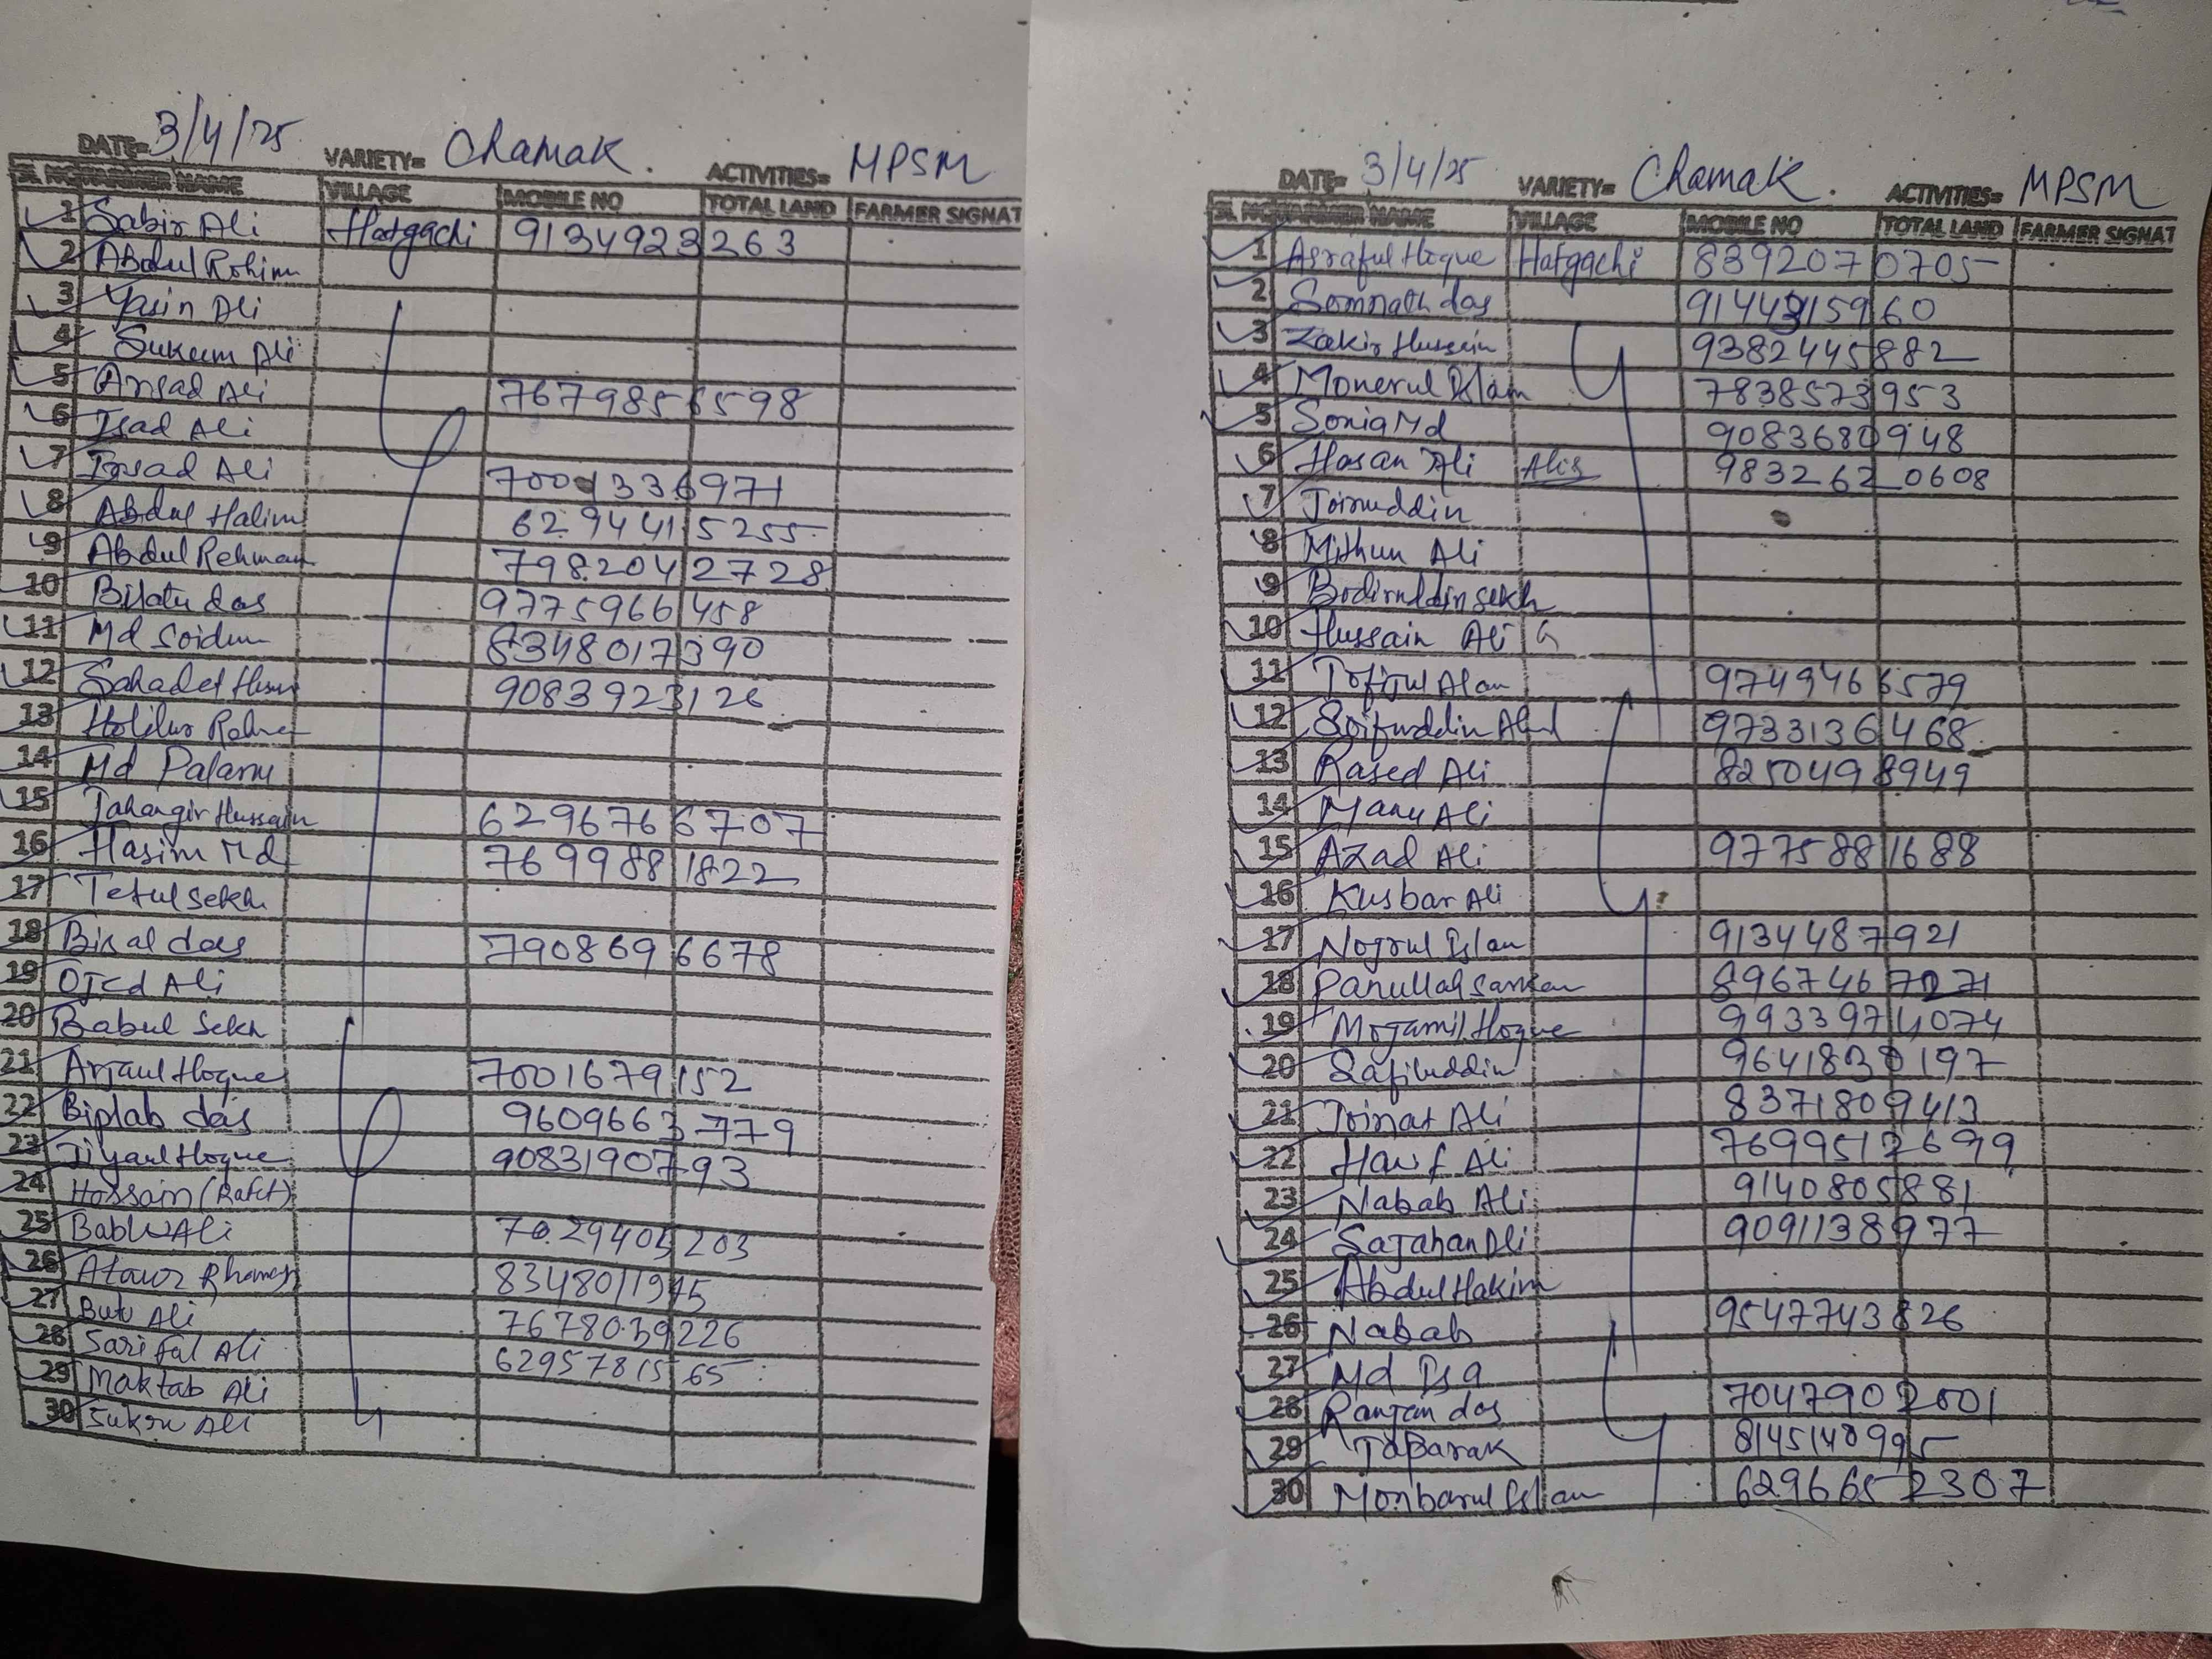 DATE= 3/4/25 VARIETY= Chamak. ACTIVITIES= MPSM
SL NO FARMER NAME VILLAGE MOBILE NO TOTAL LAND FARMER SIGNAT
1 Sabir Ali Hatgachi 9134923263
2 Abdul Rohim
3 Yasin Ali
4 Sukum Ali
5 Ansad Ali 7679856598
6 Isad Ali
7 Irsad Ali 7001336971
8 Abdul Halim 6294415255
9 Abdul Rehman 7982042728
10 Bilatu das 9775966458
11 Md Soidur 8348017390
12 Sahadet 9083923126
13
14 Md Palanu
15 Jahangir Hussain 6296766707
16 Hasim Md 7699881822
17 Tetul Sekh
18 Bisal das 7908696678
19 Ojed Ali
20 Babul Sekh
21 Arjaul Hoque 7001679152
22 Biplab das 9609663779
23 Jiyaul Hoque 9083190793
24 Hossain (Rafet)
25 Bablu Ali 7029405203
26 8348011915
27 Butu Ali 7678039226
28 Sariful Ali 6295781565
29 Maktab Ali
30 Sukru Ali
DATE= 3/4/25 VARIETY= Chamak. ACTIVITIES= MPSM
SL NO FARMER NAME VILLAGE MOBILE NO TOTAL LAND FARMER SIGNAT
1 Asraful Hoque Hatgachi 8392070705
2 Somnath das
3 Zakir Hussein 9382445882
4 Monerul Islam 7838573953
5 Sonia Md 9083680948
6 Hasan Ali 9832620608
7 Joinuddin
8 Mithun Ali
9 Bodiruddin Sekh
10 Hussain Ali
11 Tofijul Alam 9749466579
12 Soifuddin 9733136468
13 Rased Ali 8250498949
14 Manu Ali
15 Azad Ali 9775881688
16 Kusbar Ali
17 Nojrul Islam 9134487921
18 Panullah Sarkar
19 Mojamil Hoque 9933974074
20 Safiluddin 9641830197
21 Joinat Ali 8371809413
22 Ali 7699512699
23 Nabab Ali 9140805881
24 Sajahan Ali 9091138977
25 Abdul Hakim
26 Nabab 9547743826
27 Md Isa
28 Ranjan das 7047902001
29 Tabarak 8145140995
30 Monbarul Islam 6296652307